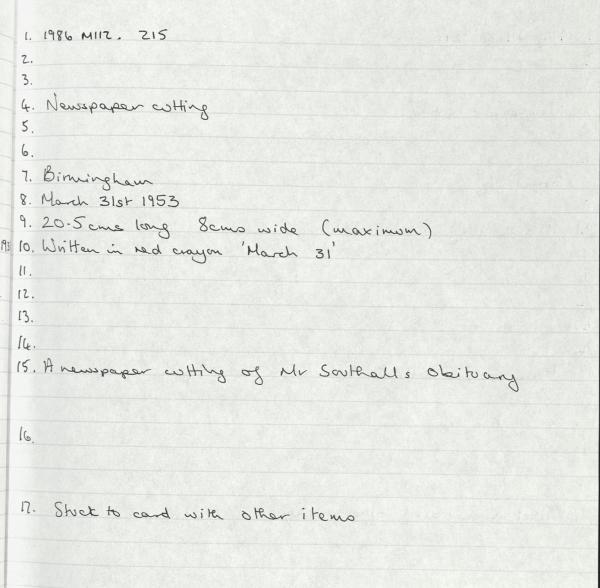 1. 1986 M112. 215
2.
3.
4. Newspaper cutting
5.
6.
7. Birmingham
8. March 31st 1953
9. 20.5cms long 8cms wide (maximum)
10. Written in red crayon 'March 31'
11.
12.
13.
14.
15. A newspaper cutting of Mr Southalls obituary
16.
17. Stuck to card with other items